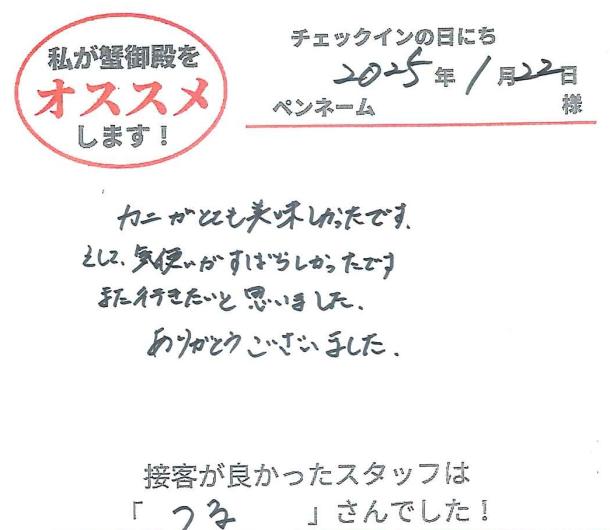 私が蟹御殿を
オススメ
します！
チェックインの日にち
2025年1月22日
ペンネーム 様
カニがとても美味しかったです。
そして、気使いがすばらしかったです
また行きたいと思いました。
ありがとうございました。
接客が良かったスタッフは
「つる」さんでした！